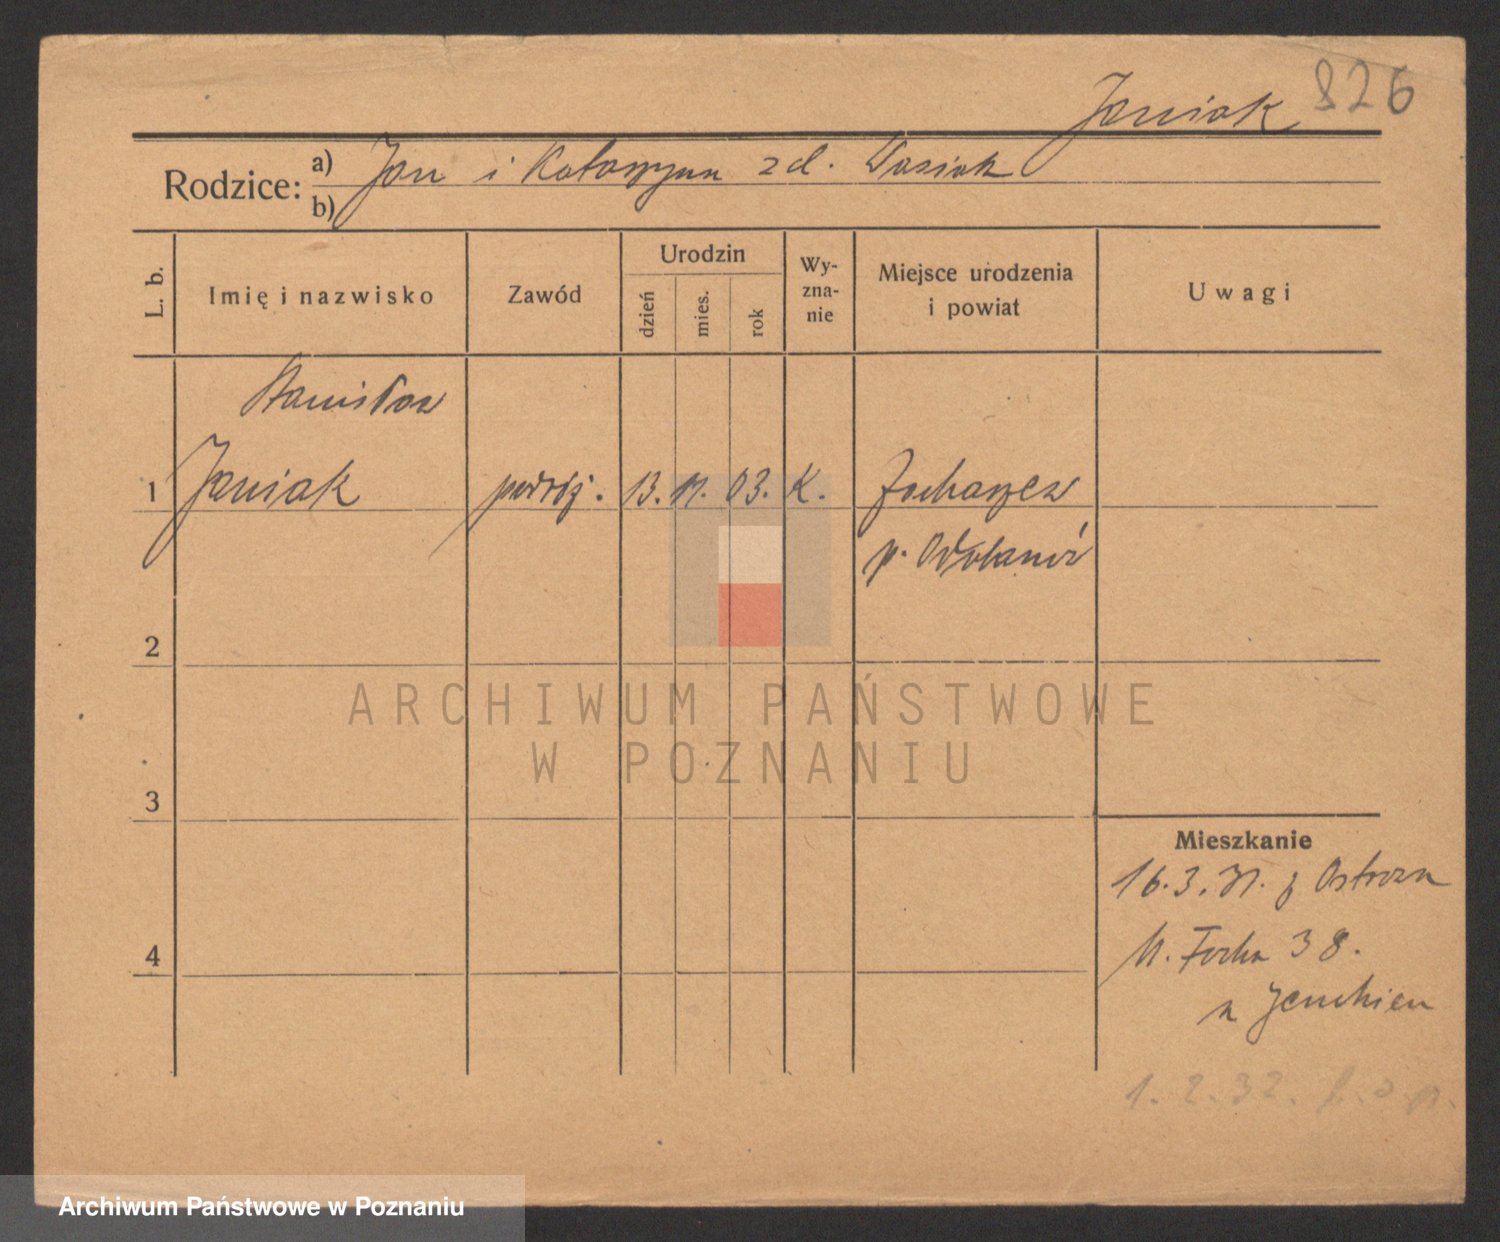 Janiak 826
Rodzice: a) Jan i Katarzyna zd. Wasiak
b)
L. b. Imię i nazwisko Zawód Urodzin dzień mies. rok Wy-zna-nie Miejsce urodzenia i powiat Uwagi
Stanisław
1 Janiak podróż. 13. 11. 03. K. Zacharzew
p. Odolanów
2
ARCHIWUM PAŃSTWOWE
W POZNANIU
3
Mieszkanie
16.3.31. z Ostrowa
M. Focha 38.
4
1.2.32.
Archiwum Państwowe w Poznaniu